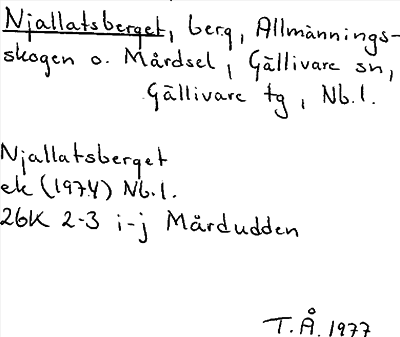 Njallatsberget, berg, Allmännings-
skogen o. Mårdsel, Gällivare sn,
Gällivare tg, Nb.l.
Njallatsberget
ek (1974) Nb.l.
26K 2-3 i-j Mårdudden
T.Å. 1977